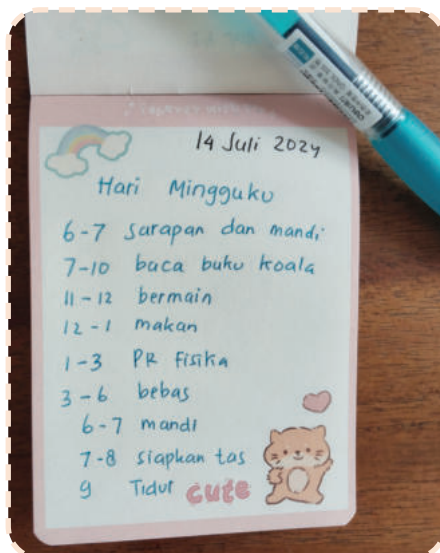 14 Juli 2024
Hari Mingguku
6-7 sarapan dan mandi
7-10 baca buku koala
11-12 bermain
12-1 makan
1-3 PR Fisika
3-6 bebas
6-7 mandi
7-8 siapkan tas
9 Tidur cute